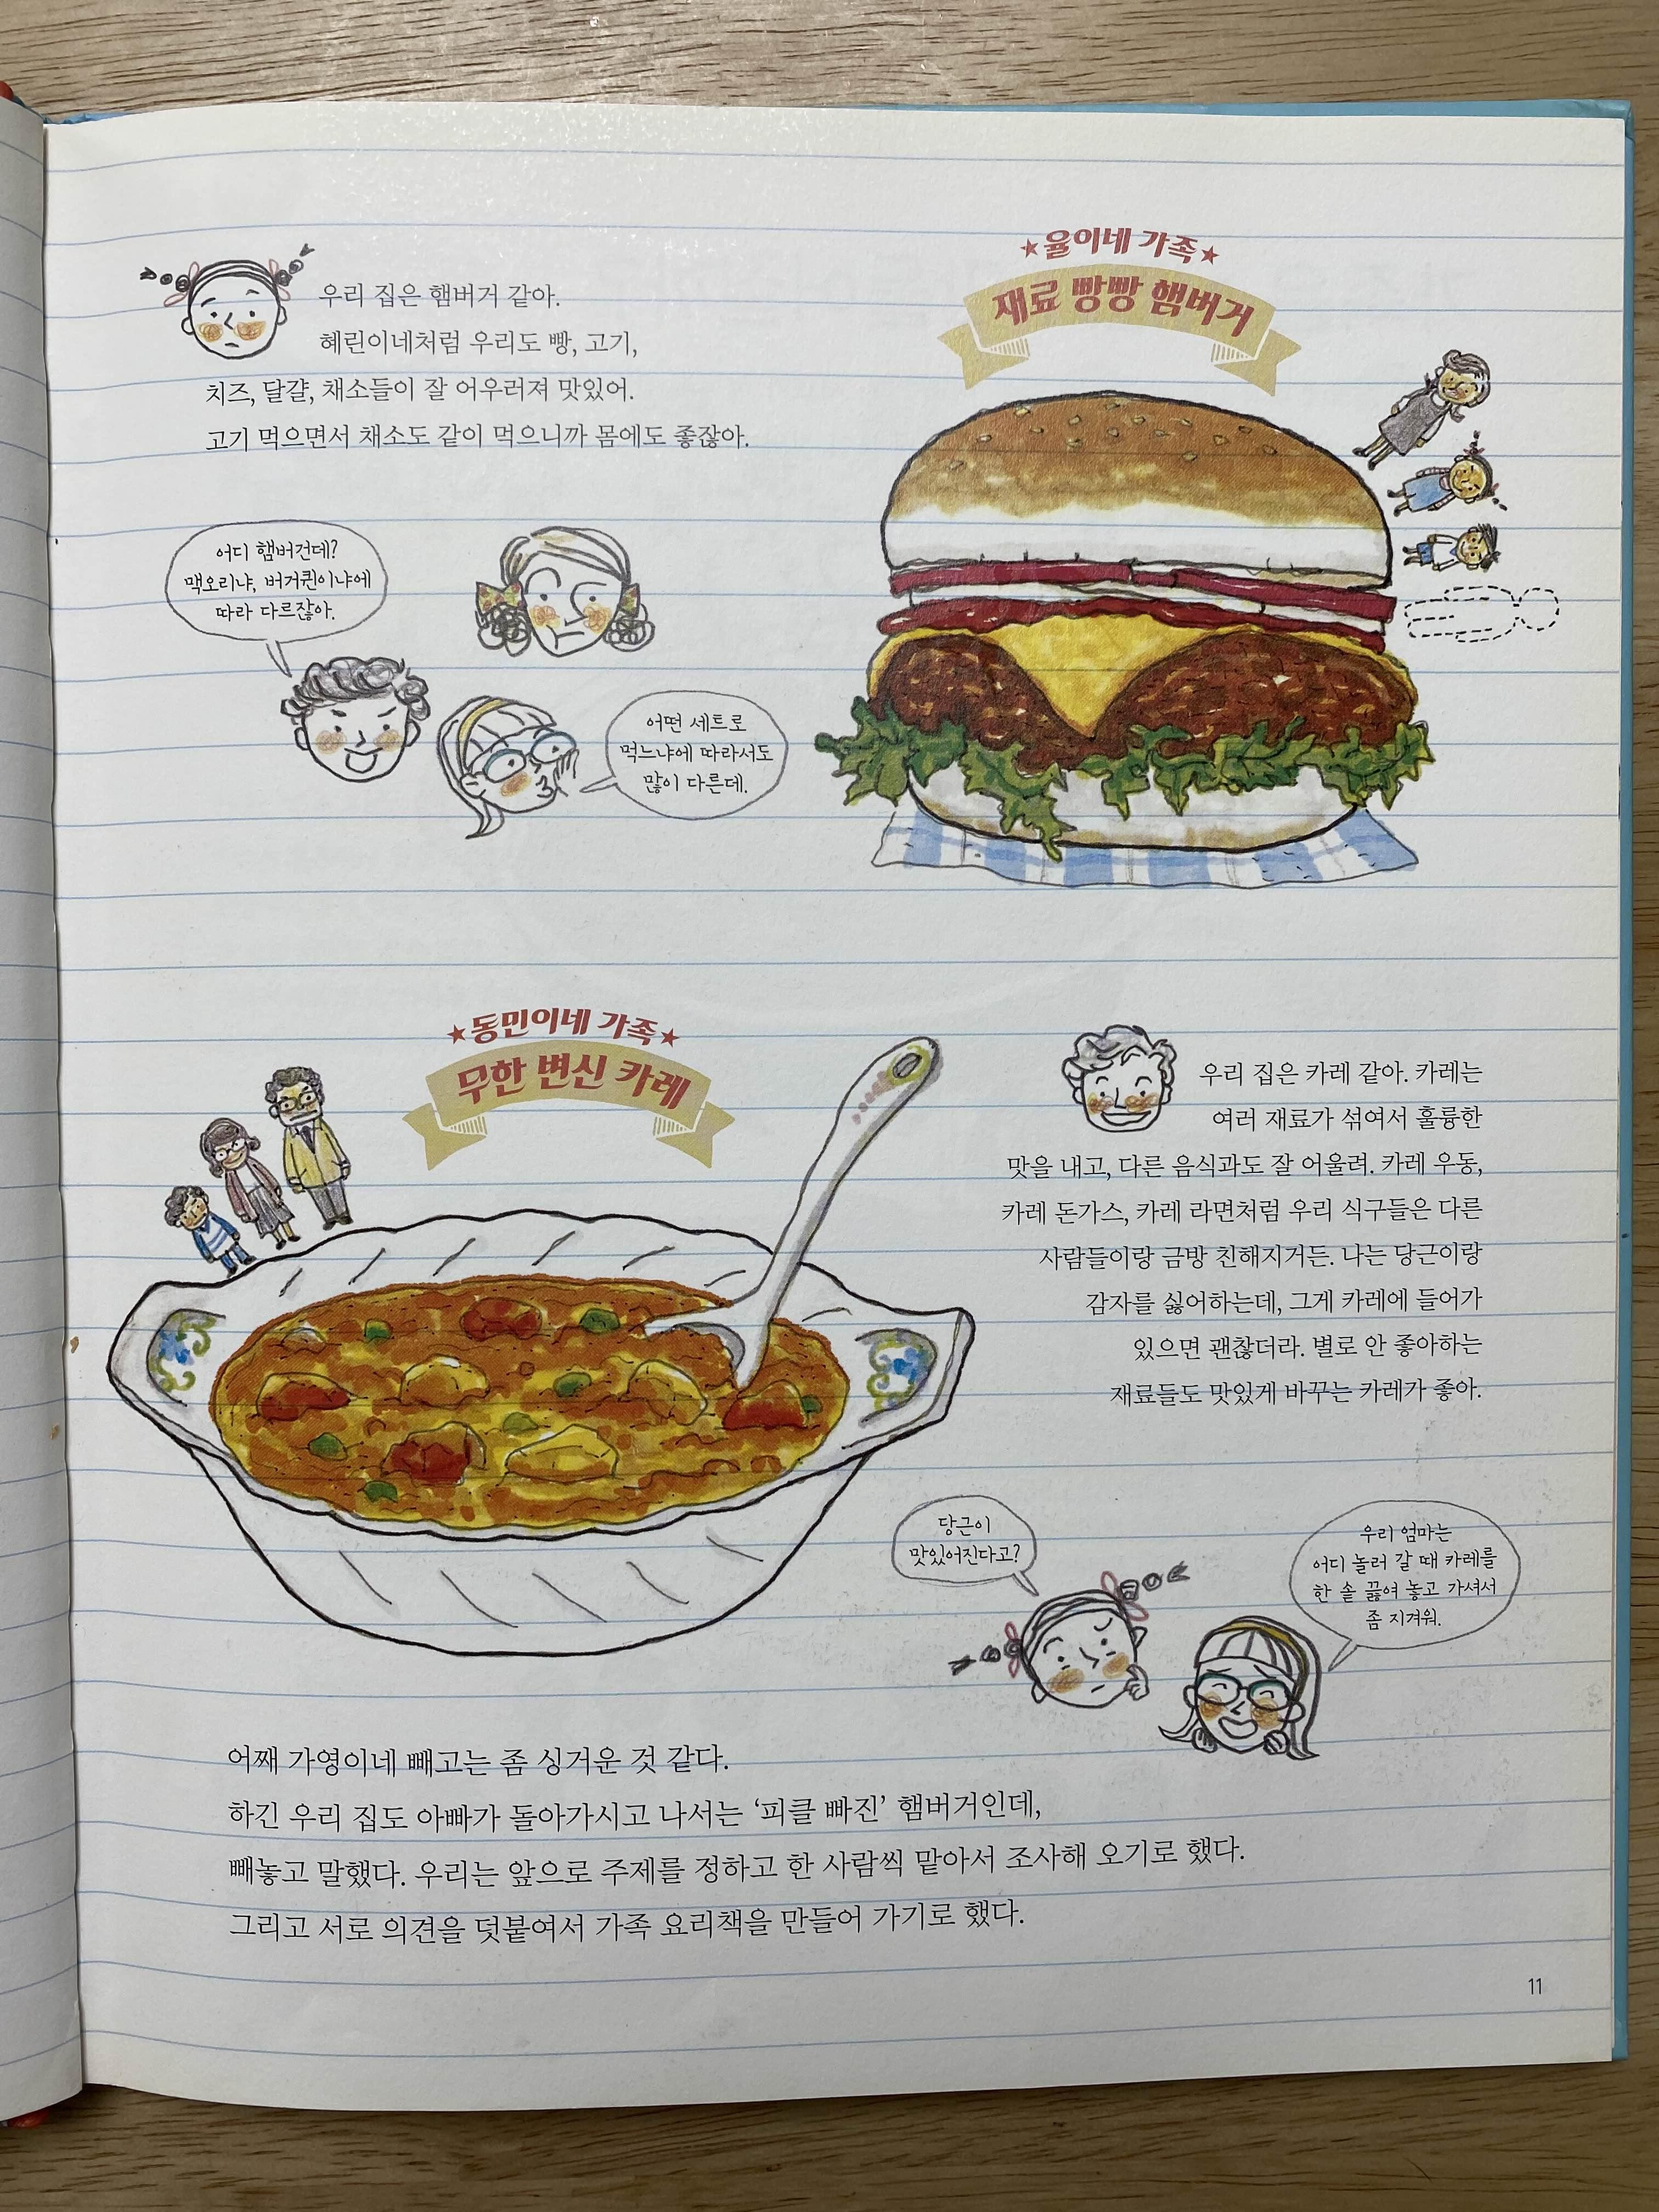 ★율이네 가족★
재료 빵빵 햄버거
우리 집은 햄버거 같아.
혜린이네처럼 우리도 빵, 고기,
치즈, 달걀, 채소들이 잘 어우러져 맛있어.
고기 먹으면서 채소도 같이 먹으니까 몸에도 좋잖아.
어디 햄버건데?
맥오리냐, 버거퀸이냐에
따라 다르잖아.
어떤 세트로
먹느냐에 따라서도
많이 다른데.
★동민이네 가족★
무한 변신 카레
우리 집은 카레 같아. 카레는
여러 재료가 섞여서 훌륭한
맛을 내고, 다른 음식과도 잘 어울려. 카레 우동,
카레 돈가스, 카레 라면처럼 우리 식구들은 다른
사람들이랑 금방 친해지거든. 나는 당근이랑
감자를 싫어하는데, 그게 카레에 들어가
있으면 괜찮더라. 별로 안 좋아하는
재료들도 맛있게 바꾸는 카레가 좋아.
당근이
맛있어진다고?
우리 엄마는
어디 놀러 갈 때 카레를
한 솥 끓여 놓고 가셔서
좀 지겨워.
어째 가영이네 빼고는 좀 싱거운 것 같다.
하긴 우리 집도 아빠가 돌아가시고 나서는 ‘피클 빠진’ 햄버거인데,
빼놓고 말했다. 우리는 앞으로 주제를 정하고 한 사람씩 맡아서 조사해 오기로 했다.
그리고 서로 의견을 덧붙여서 가족 요리책을 만들어 가기로 했다.
11